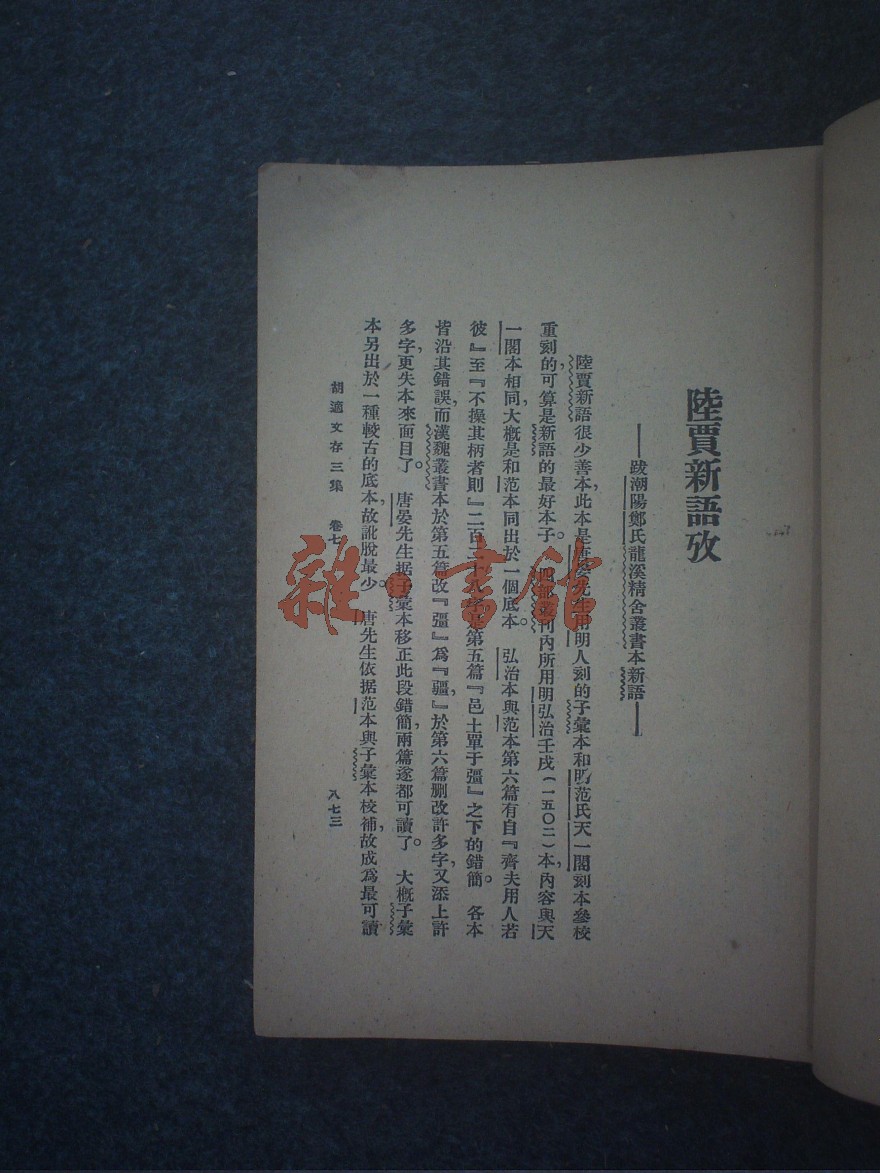 陸賈新語攷
——跋潮陽鄭氏龍溪精舍叢書本新語——
陸賈新語很少善本，此本是唐晏先生用明人刻的子彙本和明范氏天一閣刻本參校
重刻的，可算是新語的最好本子。四部叢刊內所用明弘治壬戌（一五〇二）本，內容與天
一閣本相同，大概是和范本同出於一個底本。弘治本與范本第六篇有自『齊夫用人若
彼』至『不操其柄者則』二百二十八字是第五篇『邑土單于彊』之下的錯簡。各本
皆沿其錯誤，而漢魏叢書本於第五篇改『彊』爲『疆』，於第六篇刪改許多字，又添上許
多字，更失本來面目了。唐晏先生据子彙本移正此段錯簡，兩篇遂都可讀了。大概子彙
本另出於一種較古的底本，故訛脫最少。唐先生依据范本與子彙本校補，故成爲最可讀
胡適文存三集 卷七
八七三
雜·書館